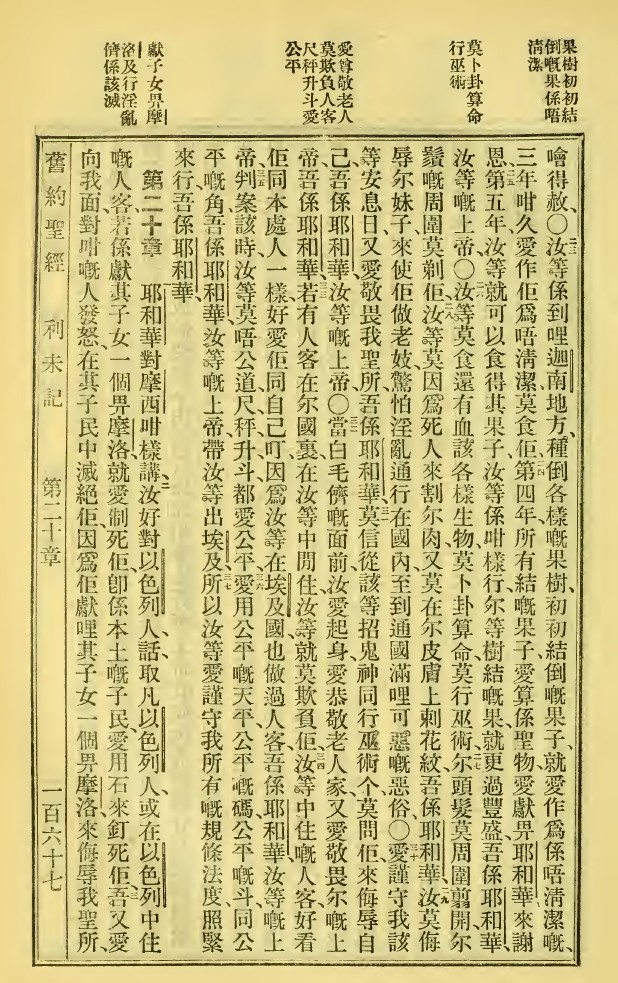 果樹初初結
倒嘅果係唔
清潔
莫卜卦算命
行巫術
愛尊敬老人
莫欺負人客
尺秤升斗愛
公平
獻子女畀摩
洛及行淫亂
儕係該滅
噲得赦〇汝等係到哩迦南地方、種倒各樣嘅果樹、初初結倒嘅果子、就愛作爲係唔清潔嘅、
三年咁久愛作佢爲唔清潔莫食佢、第四年所有結嘅果子、愛算係聖物愛獻畀耶和華來謝
恩、第五年汝等就可以食得其果子、汝等係咁樣行、尔等樹結嘅果就更過豐盛、吾係耶和華、
汝等嘅上帝〇汝等莫食還有血該各樣生物、莫卜卦算命莫行巫術、尔頭髮莫周圍翦開、尔
鬚嘅周圍莫剃佢、汝等莫因爲死人來割尔肉、又莫在尔皮膚上刺花紋、吾係耶和華、汝莫侮
辱尔妹子來使佢做老妓、驚怕淫亂通行在國內、至到通國滿哩可惡嘅惡俗〇愛謹守我該
等安息日、又愛敬畏我聖所、吾係耶和華、莫信從該等招鬼神同行巫術个、莫問佢來侮辱自
己、吾係耶和華汝等嘅上帝〇當白毛儕嘅面前、汝愛起身、愛恭敬老人家、又愛敬畏尔嘅上
帝、吾係耶和華、若有人客在尔國裏、在汝等中間住、汝等就莫欺負佢、汝等中住嘅人客、好看
佢同本處人一樣、好愛佢同自己叮、因爲汝等在埃及國也做過人客、吾係耶和華、汝等嘅上
帝、判案該時、汝等莫唔公道、尺秤升斗都愛公平、愛用公平嘅天平、公平嘅碼、公平嘅斗、同公
平嘅角、吾係耶和華、汝等嘅上帝、帶汝等出埃及、所以汝等愛謹守我所有嘅規條法度、照緊
來行、吾係耶和華
第二十章　耶和華對摩西咁樣講、汝好對以色列人話、取凡以色列人、或在以色列中住
嘅人客、若係獻其子女一個畀摩洛、就愛制死佢、卽係本土嘅子民、愛用石來釘死佢、吾又愛
向我面對咁嘅人發怒、在其子民中滅絕佢、因爲佢獻哩其子女一個畀摩洛、來侮辱我聖所、
舊約聖經　利未記　第二十章　一百六十七